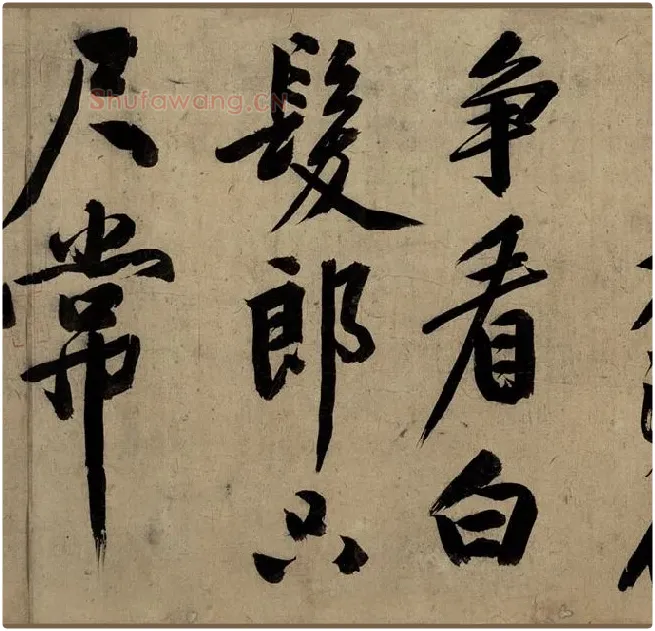 争看白
髮郎只
尺常
Shufawang.CN